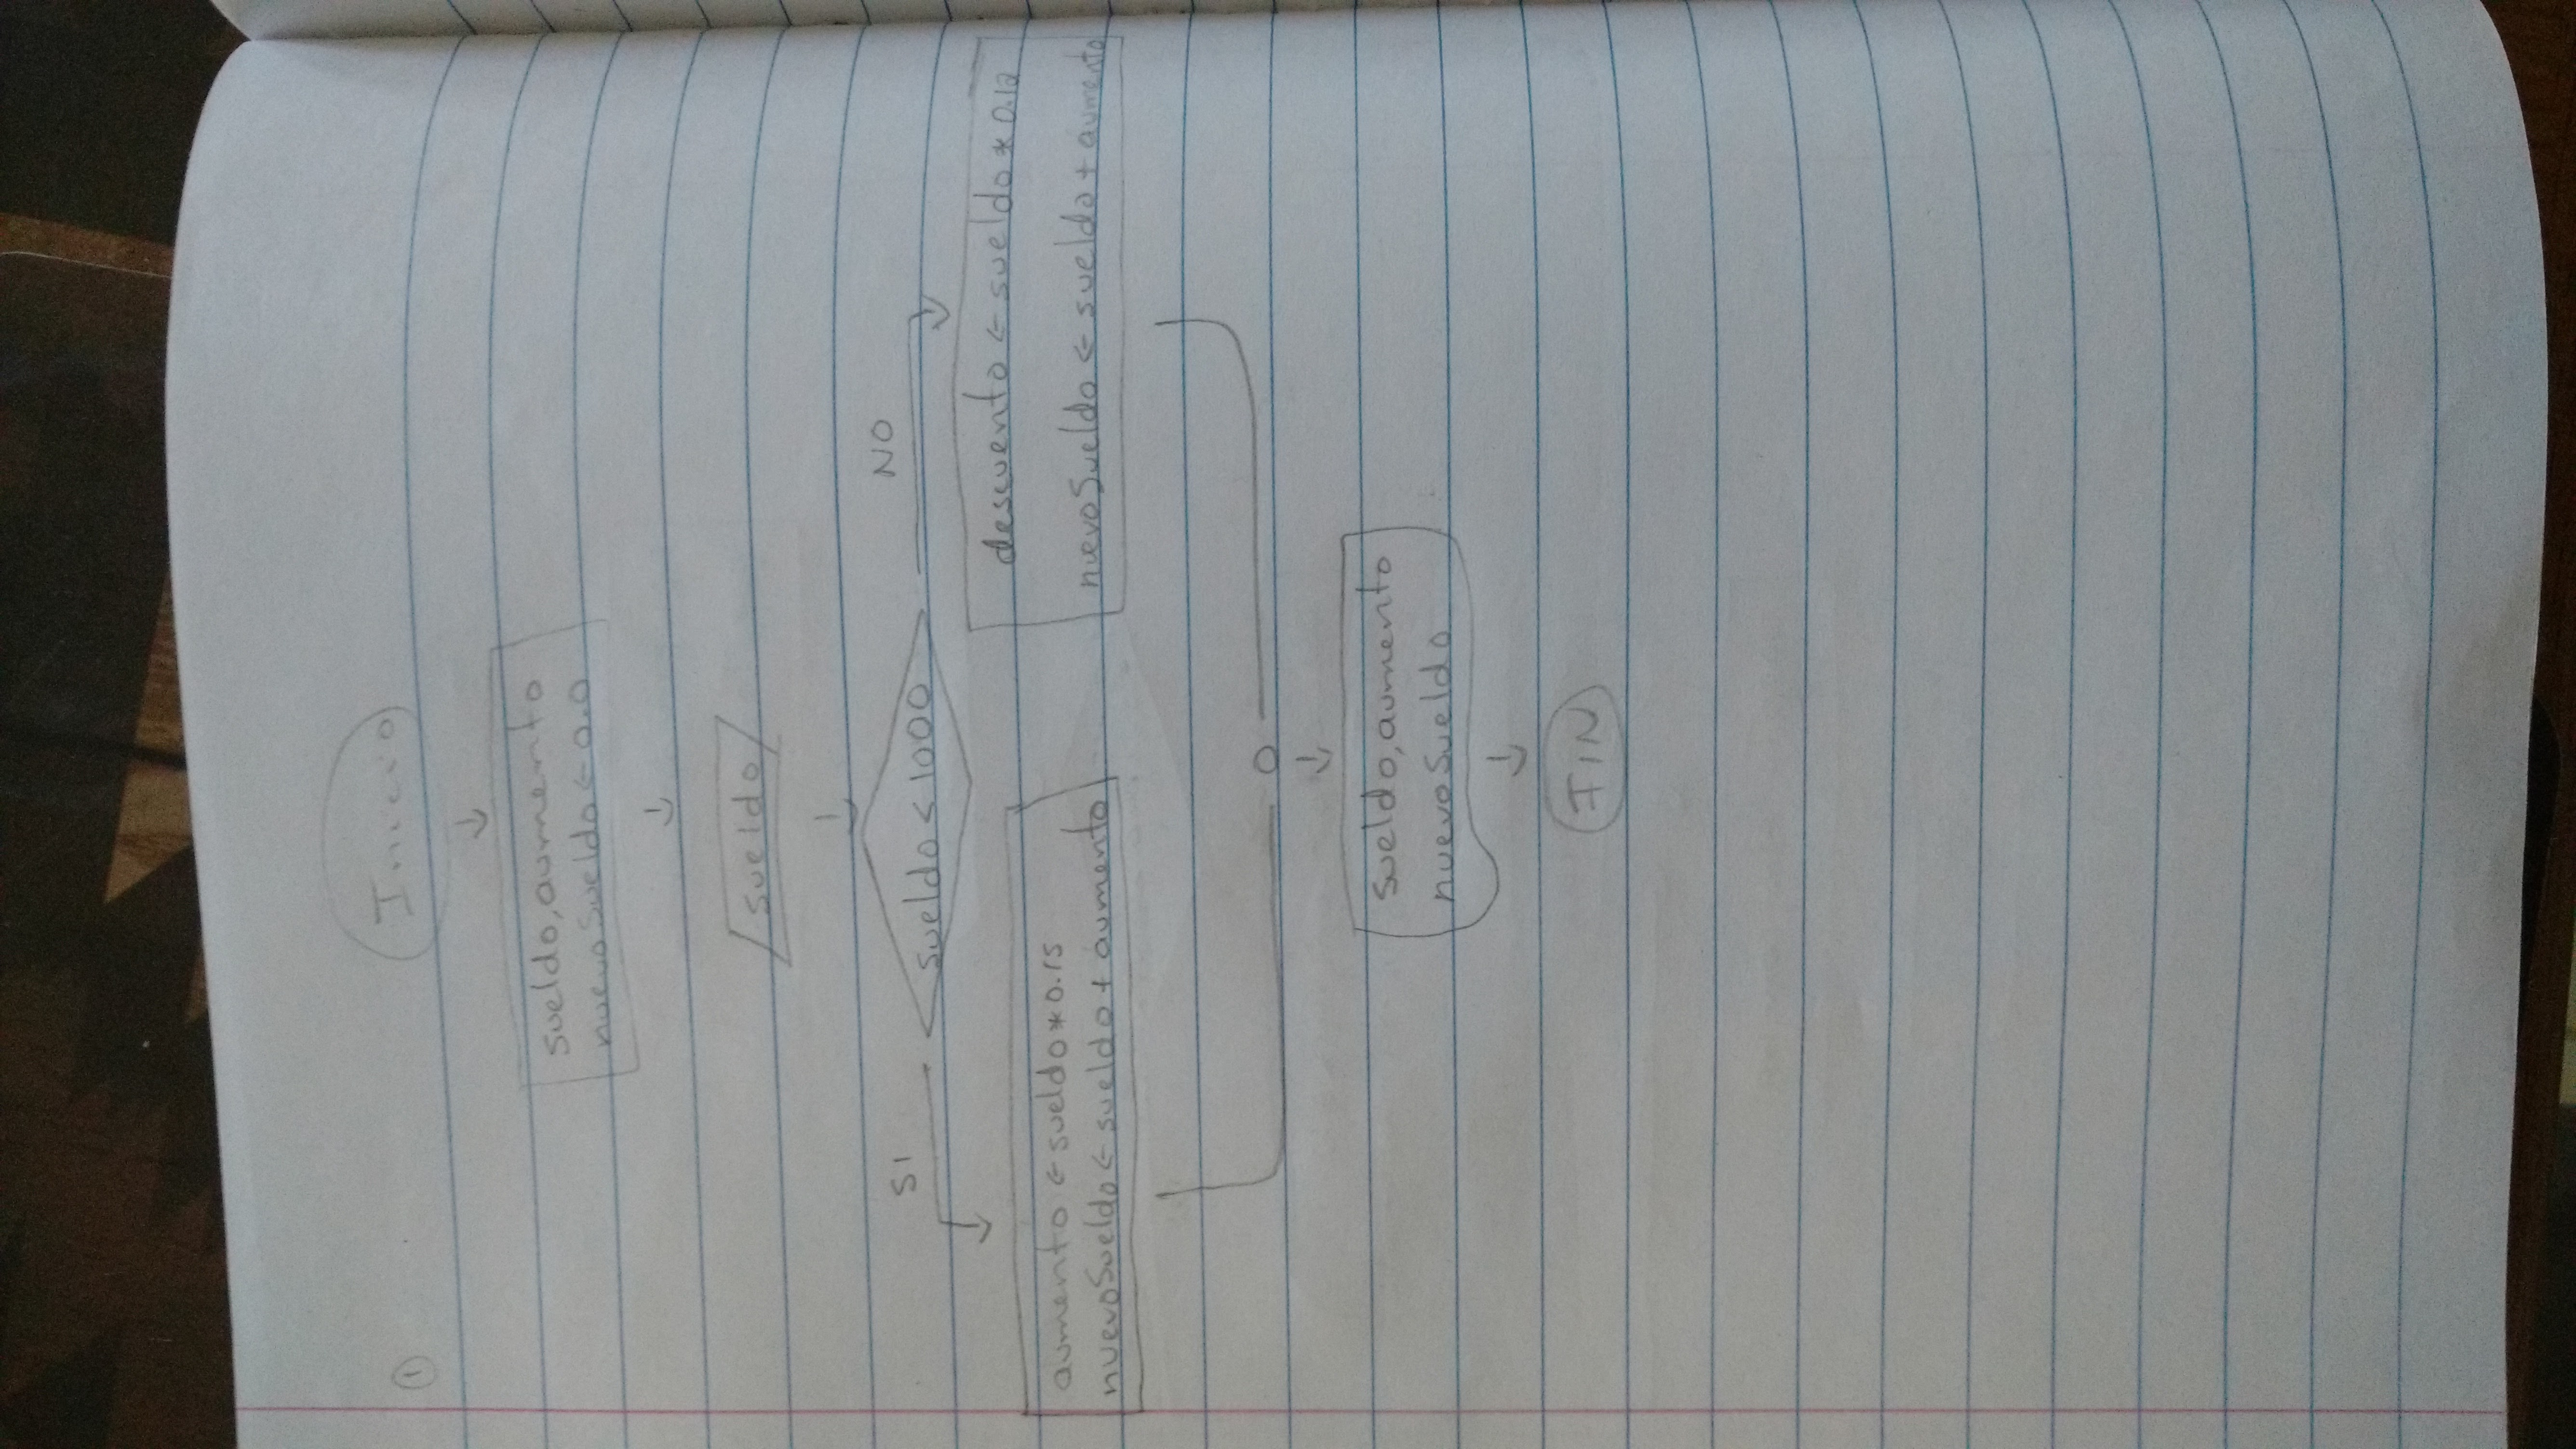 ①
Inicio
sueldo, aumento
nuevoSueldo ← 0.0
sueldo
sueldo < 1000
SI
NO
aumento ← sueldo * 0.15
nuevoSueldo ← sueldo + aumento
descuento ← sueldo * 0.12
nuevoSueldo ← sueldo + aumento
sueldo, aumento
nuevoSueldo
FIN